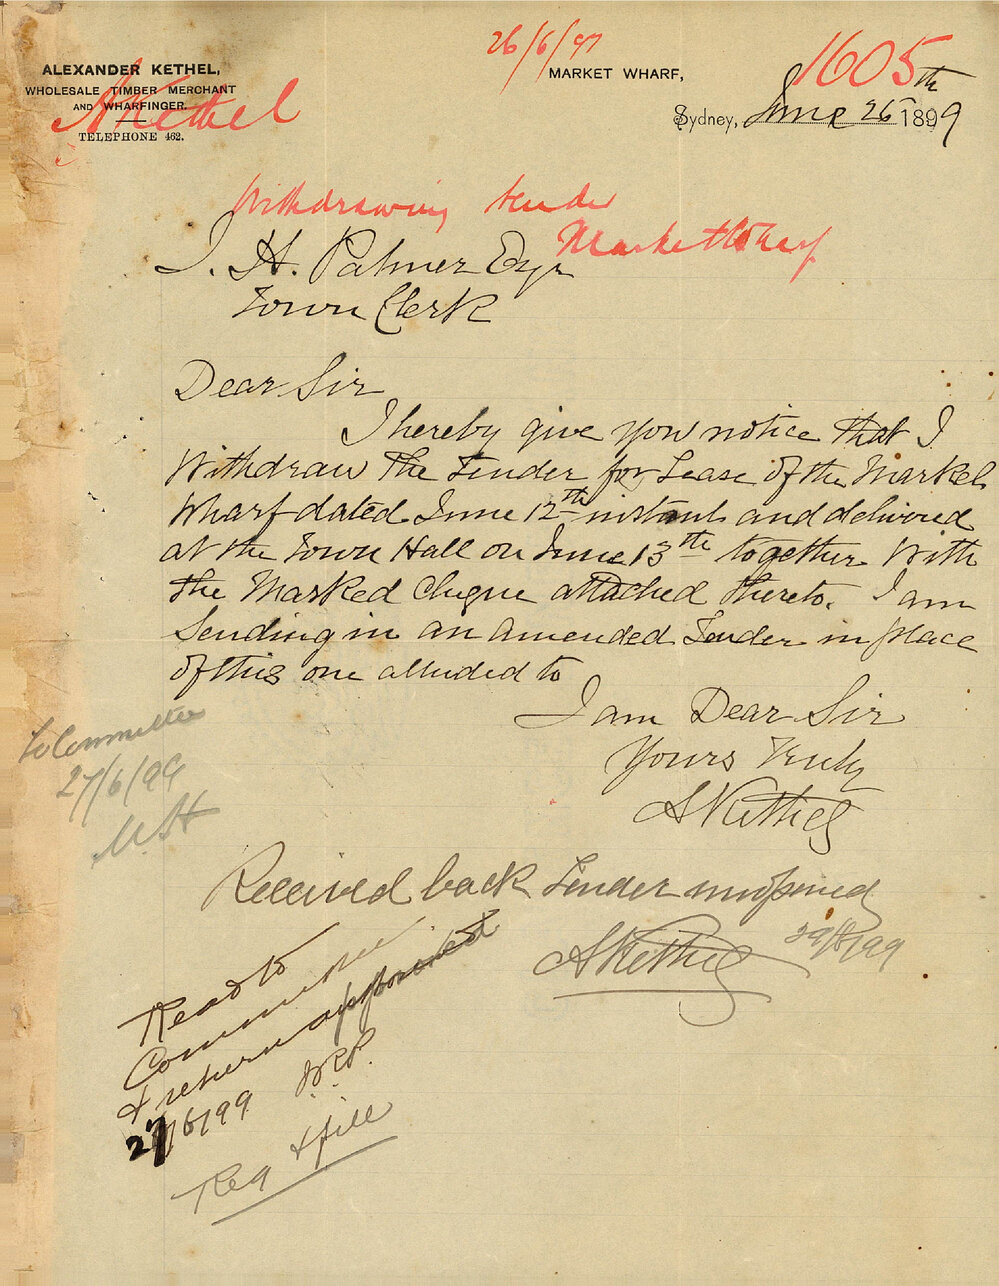 26/6/97
1605
ALEXANDER KETHEL,
WHOLESALE TIMBER MERCHANT
AND WHARFINGER.
TELEPHONE 462.
AKethel
MARKET WHARF,
Sydney, June 26th 1899
Withdrawing tender
Market Wharf
J. H. Palmer Esqr
Town Clerk
Dear Sir
I hereby give you notice that I
Withdraw the Tender for Lease of the Market
Wharf dated June 12th instant and delivered
at the Town Hall on June 13th together with
the Marked Cheque attached thereto. I am
Sending in an amended Tender in place
of this one alluded to
I am Dear Sir
Yours Truly
AKethel
To Committee
27/6/99
Received back Tender unopened
AKethel 29/6/99
Read to
Committee
& return approved
27/6/99
Reg & file